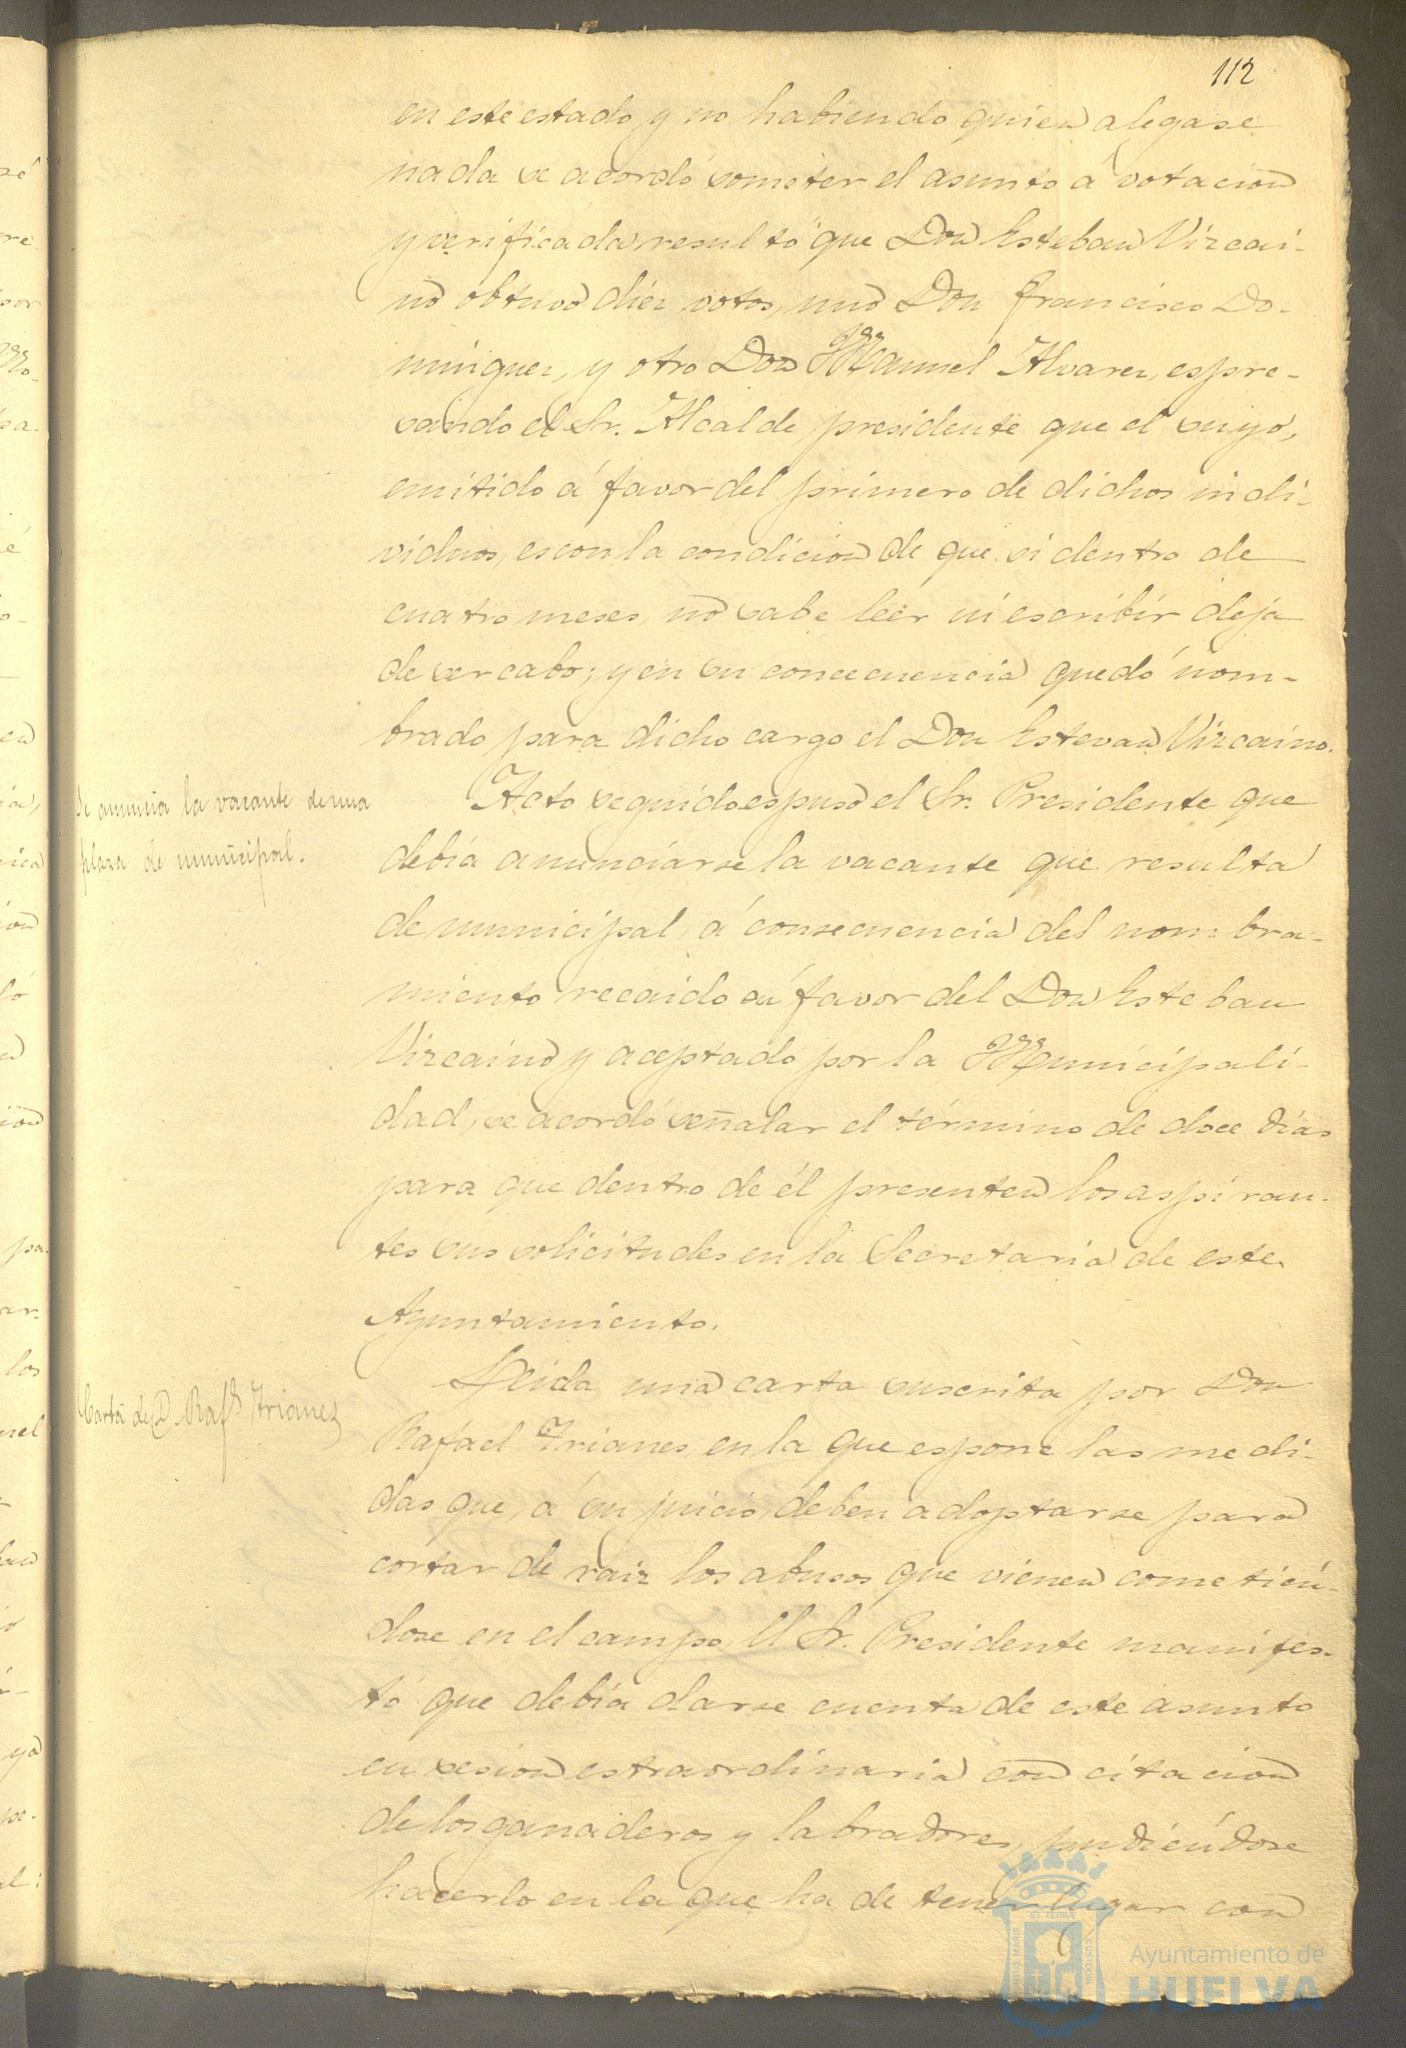 112
en este estado y no habiendo quien alegase
nada se acordó someter el asunto á votacion
y verificada resultó que Don Esteban Vizcai-
no obtuvo diez votos, uno Don Francisco Do-
minguez, y otro Don Manuel Alvarez, espre-
sando el Sr. Alcalde presidente que el suyo,
emitido á favor del primero de dichos indi-
viduos, es con la condicion de que si dentro de
cuatro meses no sabe leer ni escribir deja
de ser cabo; y en su concecuencia quedó nom-
brado para dicho cargo el Don Estevan Vizcaino.
Se anuncia la vacante de una
plaza de municipal.
Acto seguido espuso el Sr. Presidente que
debia anunciarse la vacante que resulta
de municipal, á consecuencia del nombra-
miento recaido en favor del Don Esteban
Vizcaino y aceptado por la Municipali-
dad, se acordó señalar el término de doce dias
para que dentro de él presenten los aspiran-
tes sus solicitudes en la Secretaria de este
Ayuntamiento.
Carta de D. Raf.l Trianes
Leida una carta suscrita por Don
Rafael Trianes, en la que espone las medi-
das que, á su juicio, deben adoptarse para
cortar de raiz los abusos que vienen cometién-
dose en el campo, El Sr. Presidente manifes-
tó que debia darse cuenta de este asunto
en sesion estraordinaria con citacion
de los ganaderos y labradores, pudiéndose
hacerlo en la que ha de tener lugar con
Ayuntamiento de
HUELVA